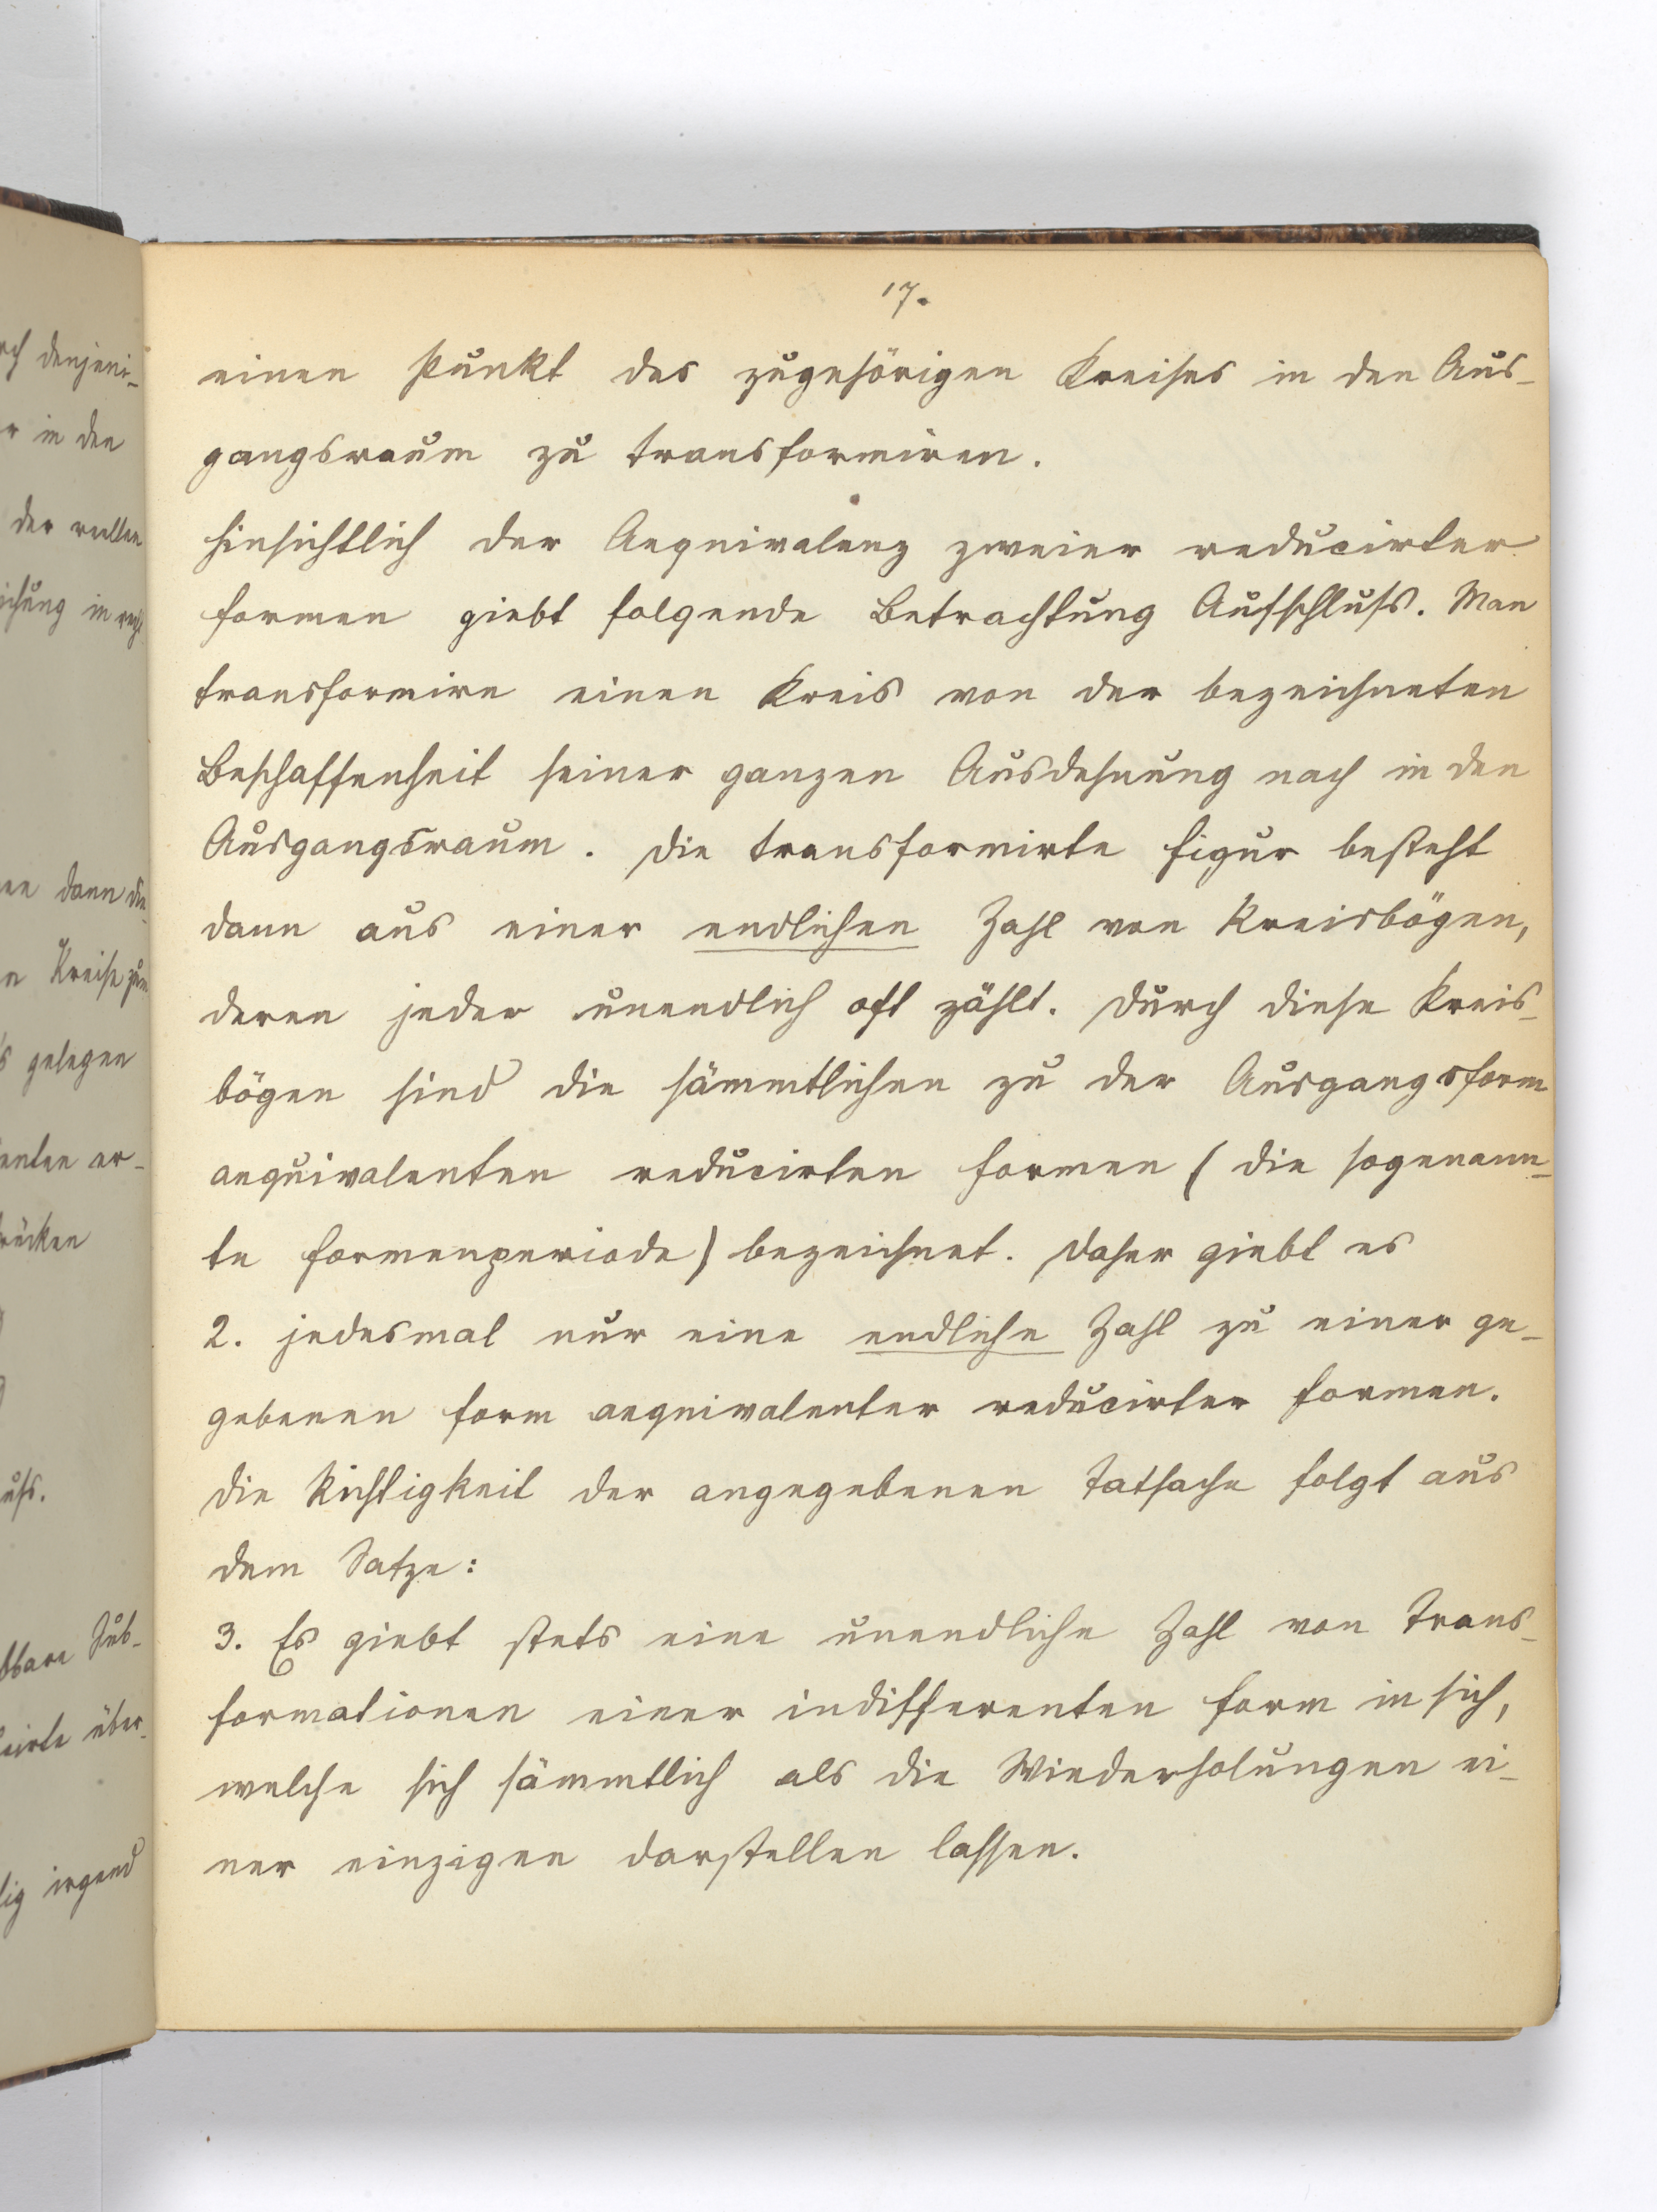 17.
einen Punkt des zugehörigen Kreises in den Aus-
gangsraum zu transformiren.
Hinsichtlich der Aequivalenz zweier reducirter
Formen giebt folgende Betrachtung Aufschluss. Man
transformire einen Kreis von der bezeichneten
Beschaffenheit seiner ganzen Ausdehnung nach in den
Ausgangsraum. Die transformirte Figur besteht
dann aus einer endlichen Zahl von Kreisbögen,
deren jeder unendlich oft zählt. Durch diese Kreis-
bögen sind die sämmtlichen zu der Ausgangsform
aequivalenten reducirten Formen (die sogenann-
te Formenperiode) bezeichnet. Daher giebt es
2. jedesmal nur eine endliche Zahl zu einer ge-
gebenen Form aequivalenter reducirter Formen.
Die Richtigkeit der angegebenen Tatsache folgt aus
dem Satze:
3. Es giebt stets eine unendliche Zahl von Trans-
formationen einer indifferenten Form in sich,
welche sich sämmtlich als die Wiederholungen ei-
ner einzigen darstellen lassen.
denjeni-
in den
der reellen
in
dann die
Kreise
gelegen
er-
Sub-
über-
irgend